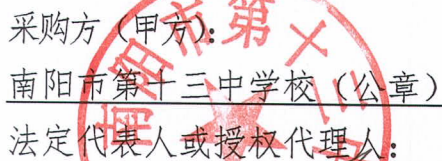 采购方（甲方）：
南阳市第十三中学校（公章）
法定代表人或授权代理人：
南阳市第十三